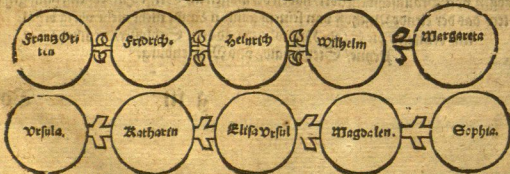 Frantz Ort
ten
Fridrich.
Heinrich
Wilhelm
Margareta
Vrsula.
Katharin
Elisa Vrsul
Magdalen.
Sophia.